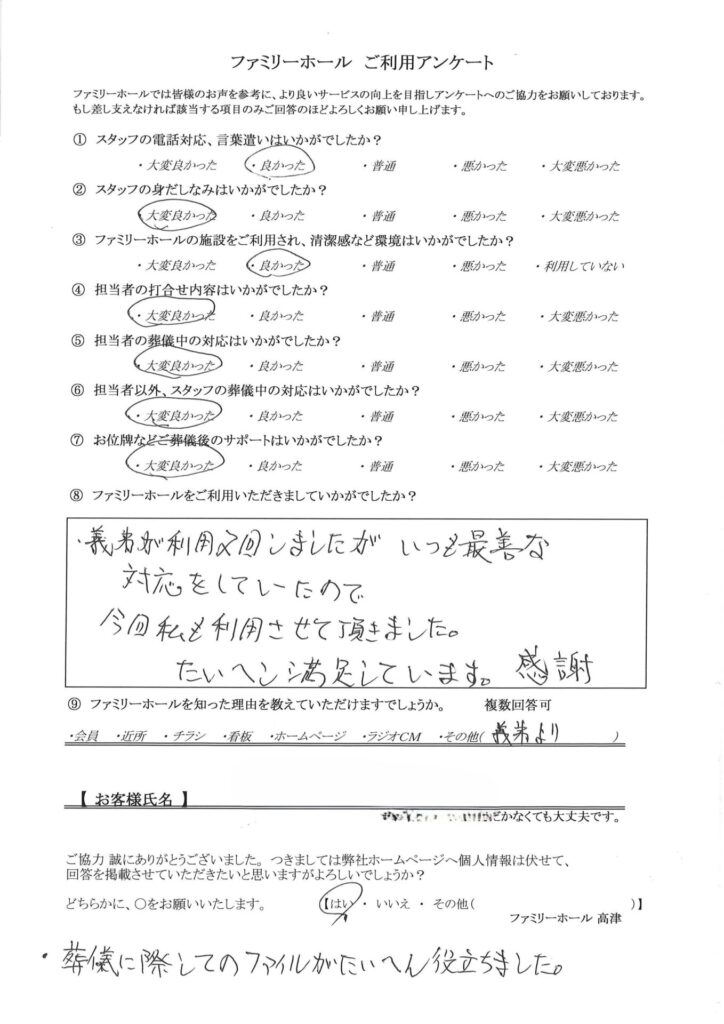 ファミリーホール ご利用アンケート
ファミリーホールでは皆様のお声を参考に、より良いサービスの向上を目指しアンケートへのご協力をお願いしております。
もし差し支えなければ該当する項目のみご回答のほどよろしくお願い申し上げます。
① スタッフの電話対応、言葉遣いはいかがでしたか？
・大変良かった ・良かった ・普通 ・悪かった ・大変悪かった
② スタッフの身だしなみはいかがでしたか？
・大変良かった ・良かった ・普通 ・悪かった ・大変悪かった
③ ファミリーホールの施設をご利用され、清潔感など環境はいかがでしたか？
・大変良かった ・良かった ・普通 ・悪かった ・利用していない
④ 担当者の打合せ内容はいかがでしたか？
・大変良かった ・良かった ・普通 ・悪かった ・大変悪かった
⑤ 担当者の葬儀中の対応はいかがでしたか？
・大変良かった ・良かった ・普通 ・悪かった ・大変悪かった
⑥ 担当者以外、スタッフの葬儀中の対応はいかがでしたか？
・大変良かった ・良かった ・普通 ・悪かった ・大変悪かった
⑦ お位牌などご葬儀後のサポートはいかがでしたか？
・大変良かった ・良かった ・普通 ・悪かった ・大変悪かった
⑧ ファミリーホールをご利用いただきましていかがでしたか？
・義弟が利用2回しましたが いつも最善な
対応をしていたので
今回私も利用させて頂きました。
たいヘン満足しています。感謝
⑨ ファミリーホールを知った理由を教えていただけますでしょうか。 複数回答可
・会員 ・近所 ・チラシ ・看板 ・ホームページ ・ラジオCM ・その他( 義弟より )
【 お客様氏名 】
かなくても大丈夫です。
ご協力 誠にありがとうございました。つきましては弊社ホームページへ個人情報は伏せて、
回答を掲載させていただきたいと思いますがよろしいでしょうか？
どちらかに、〇をお願いいたします。 【はい ・ いいえ ・ その他( )】
ファミリーホール 高津
・葬儀に際してのファイルがたいへん役立ちました。